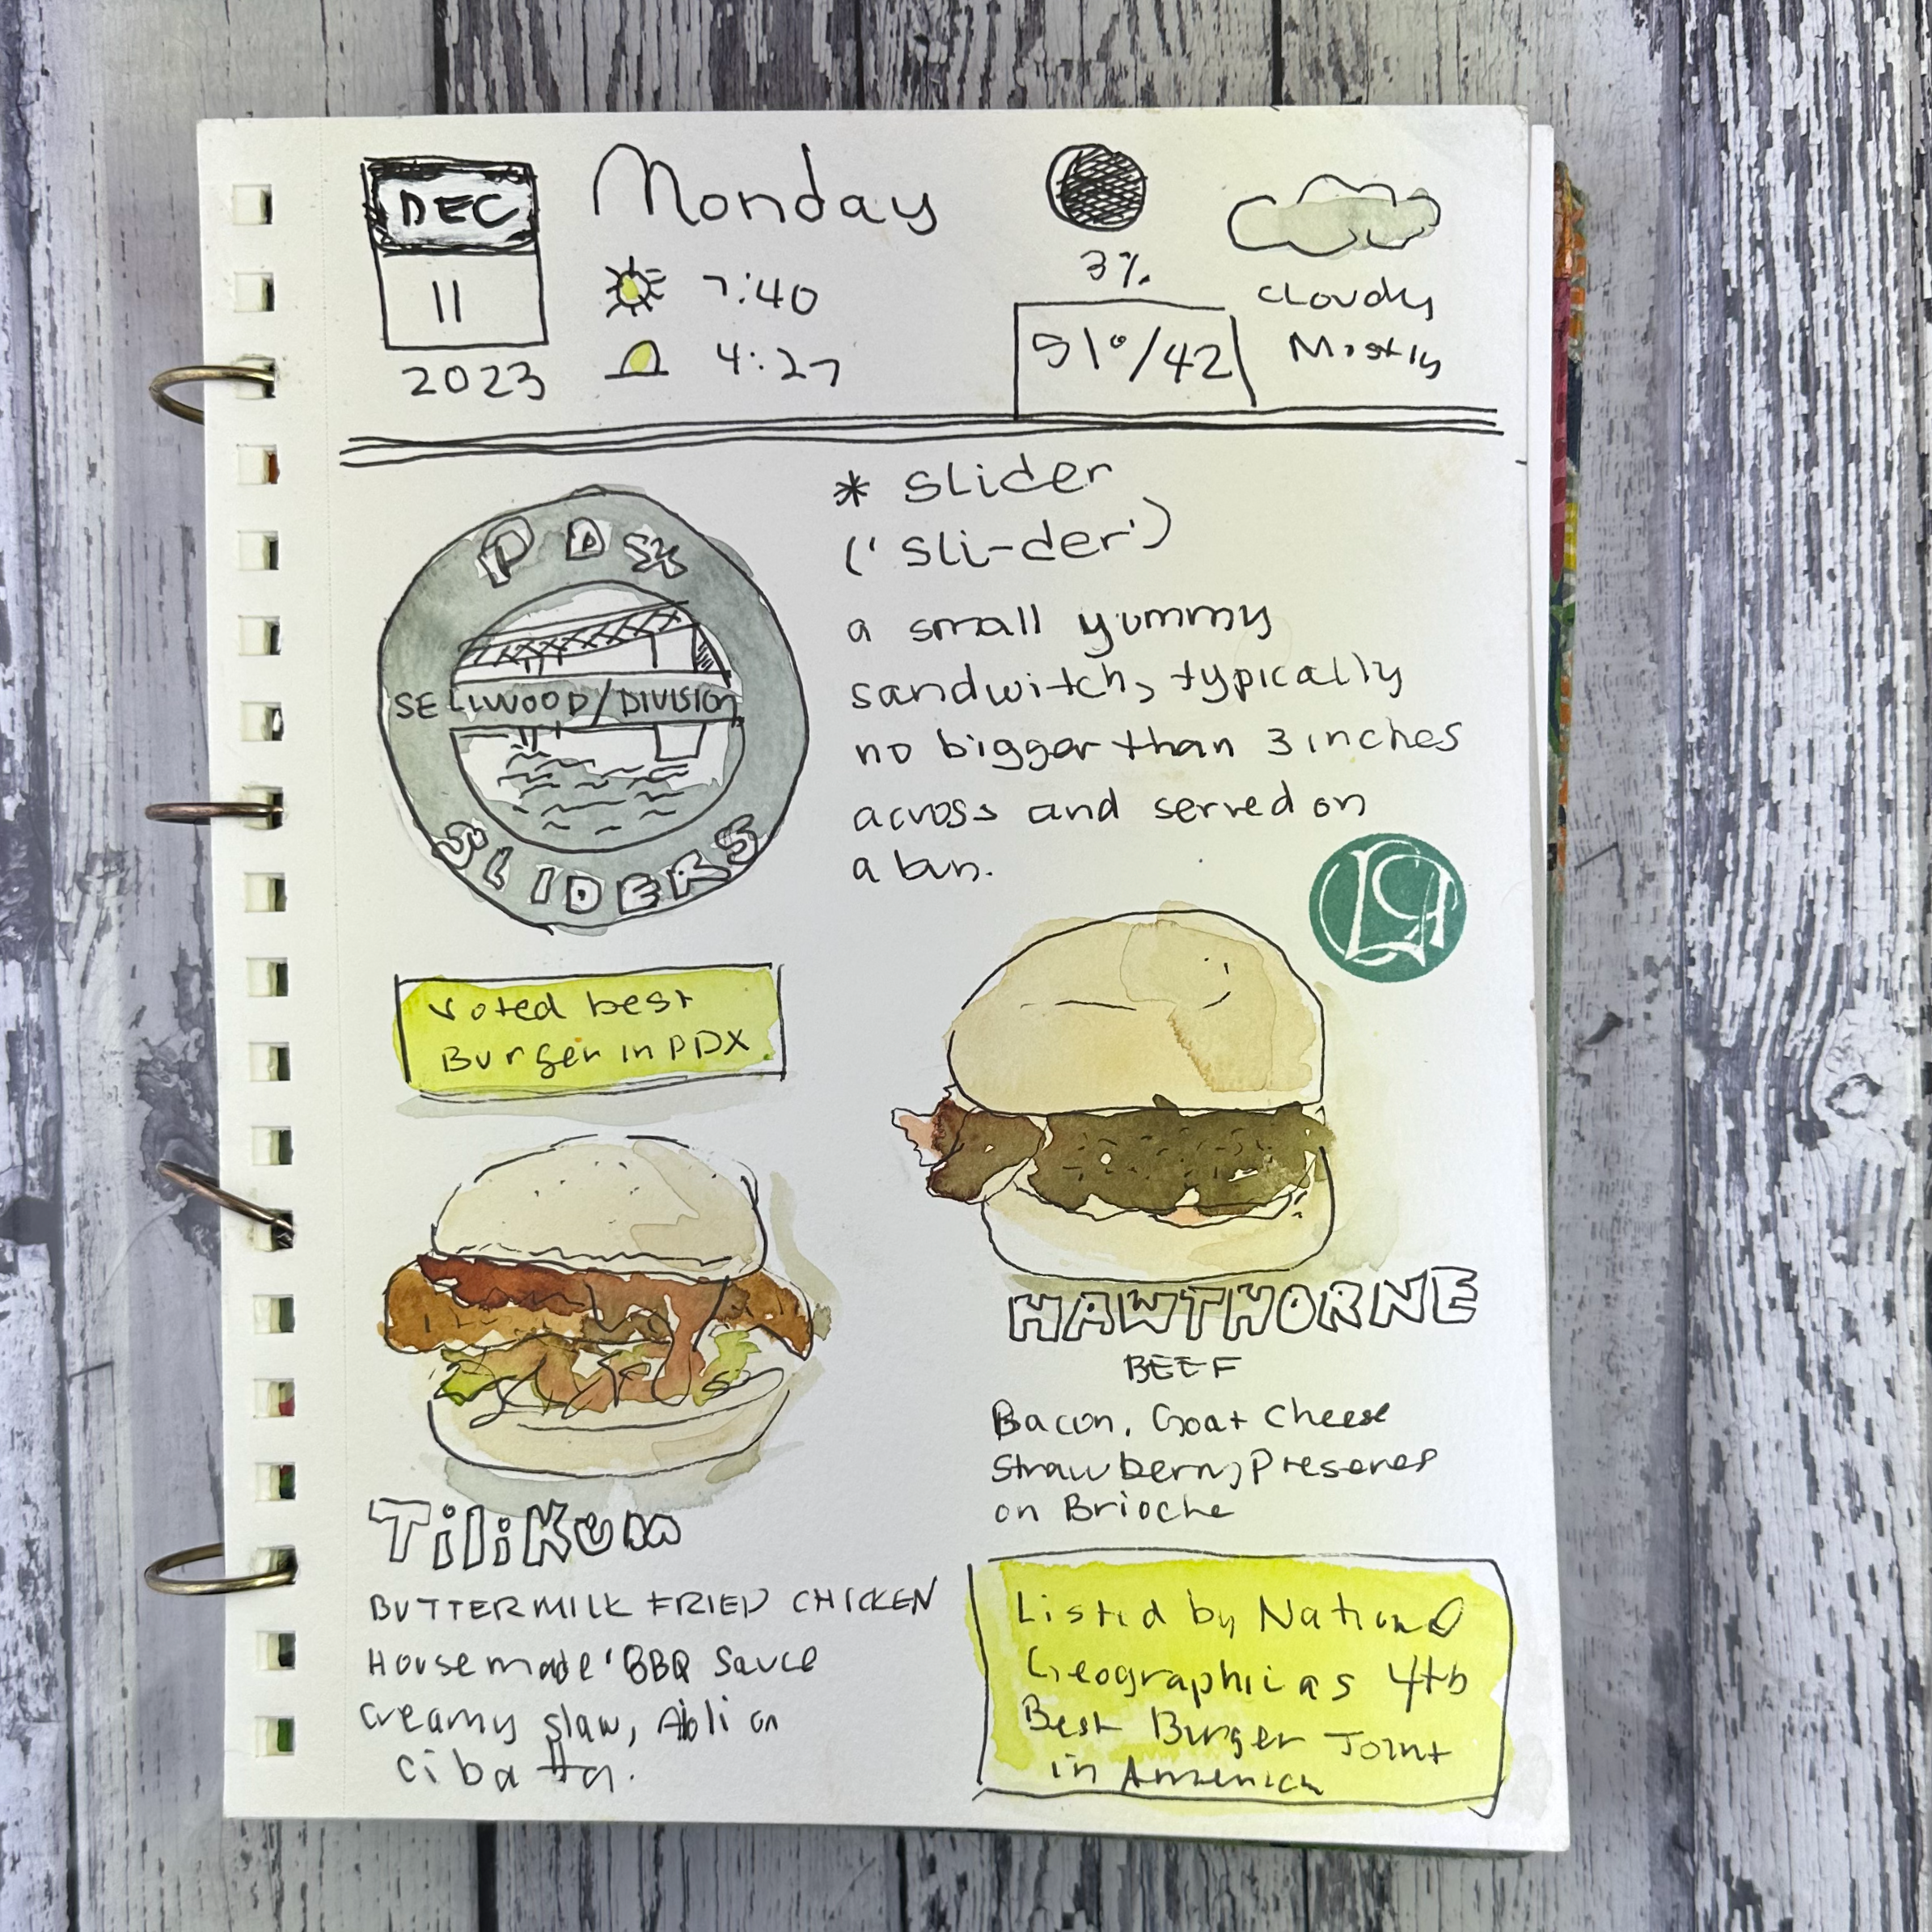 DEC
11
2023
Monday
7:40
4:27
3%
51°/42
cloudy
Mostly
PDX
SELLWOOD/DIVISION
SLIDERS
* slider
(' sli-der')
a small yummy
sandwitch, typically
no bigger than 3 inches
across and served on
a bun.
Voted best
Burger in PDX
HAWTHORNE
BEEF
Bacon, Goat Cheese
Strawberry Preserves
on Brioche
TiliKum
BUTTERMILK FRIED CHICKEN
House made BBQ Sauce
creamy slaw, Aioli on
cibatta.
Listed by National
Geographic as 4th
Best Burger Joint
in America